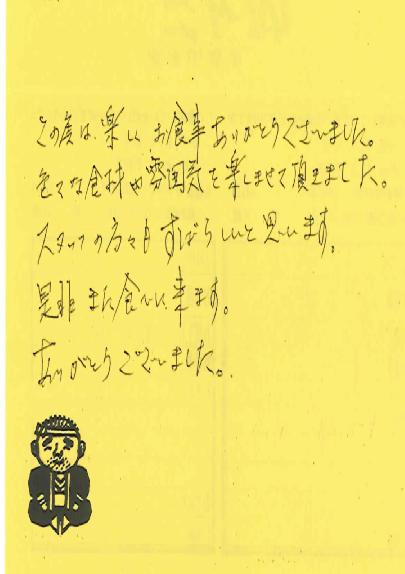 この度は、楽しいお食事ありがとうございました。
色々な食材や雰囲気を楽しませて頂きました。
スタッフの方々もすばらしいと思います。
是非また食べに来ます。
ありがとうございました。